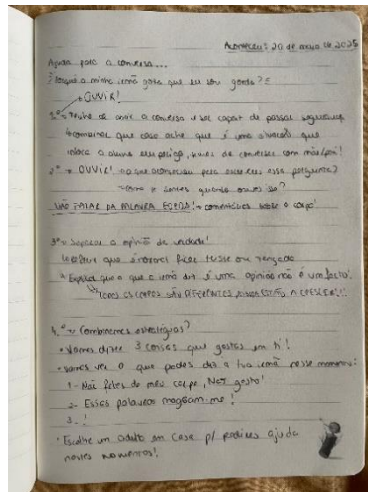 Aconteceu: 20 de maio de 2025
Ajuda para a conversa...
"Porquê a minha irmã gosta que eu sou gorda?"
OUVIR!
1º → Tenho de
a conversa e ser capaz de passar segurança
combinar que caso ache que é uma situação que
coloca a aluna em perigo, temos de conversar com mãe/pai!
2º → OUVIR! o que aconteceu para
essa pergunta?
como te sentes quando ouves isso?
NÃO FALAR DA PALAVRA GORDA! → comentários sobre o corpo!
3º → Separar a opinião da verdade!
Reforçar que é normal ficar triste ou zangado
Explicar que o que a irmã diz é uma opinião não é um facto!
TODOS OS CORPOS SÃO DIFERENTES,
ESTÃO A CRESCER!!!
4º → Combinamos estratégias?
• Vamos dizer 3 coisas que gostas em ti!
• Vamos ver o que podes dizer à tua irmã nesse momento:
1 - Não fales do meu corpo, NÃO gosto!
2 - Essas palavras magoam-me!
3 - !
• Escolhe um adulto em casa p/ pedires ajuda
nestes momentos!